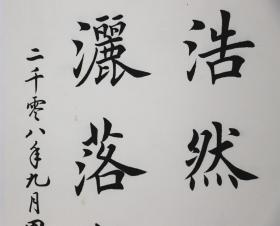 浩然
灑落
二千零八年九月